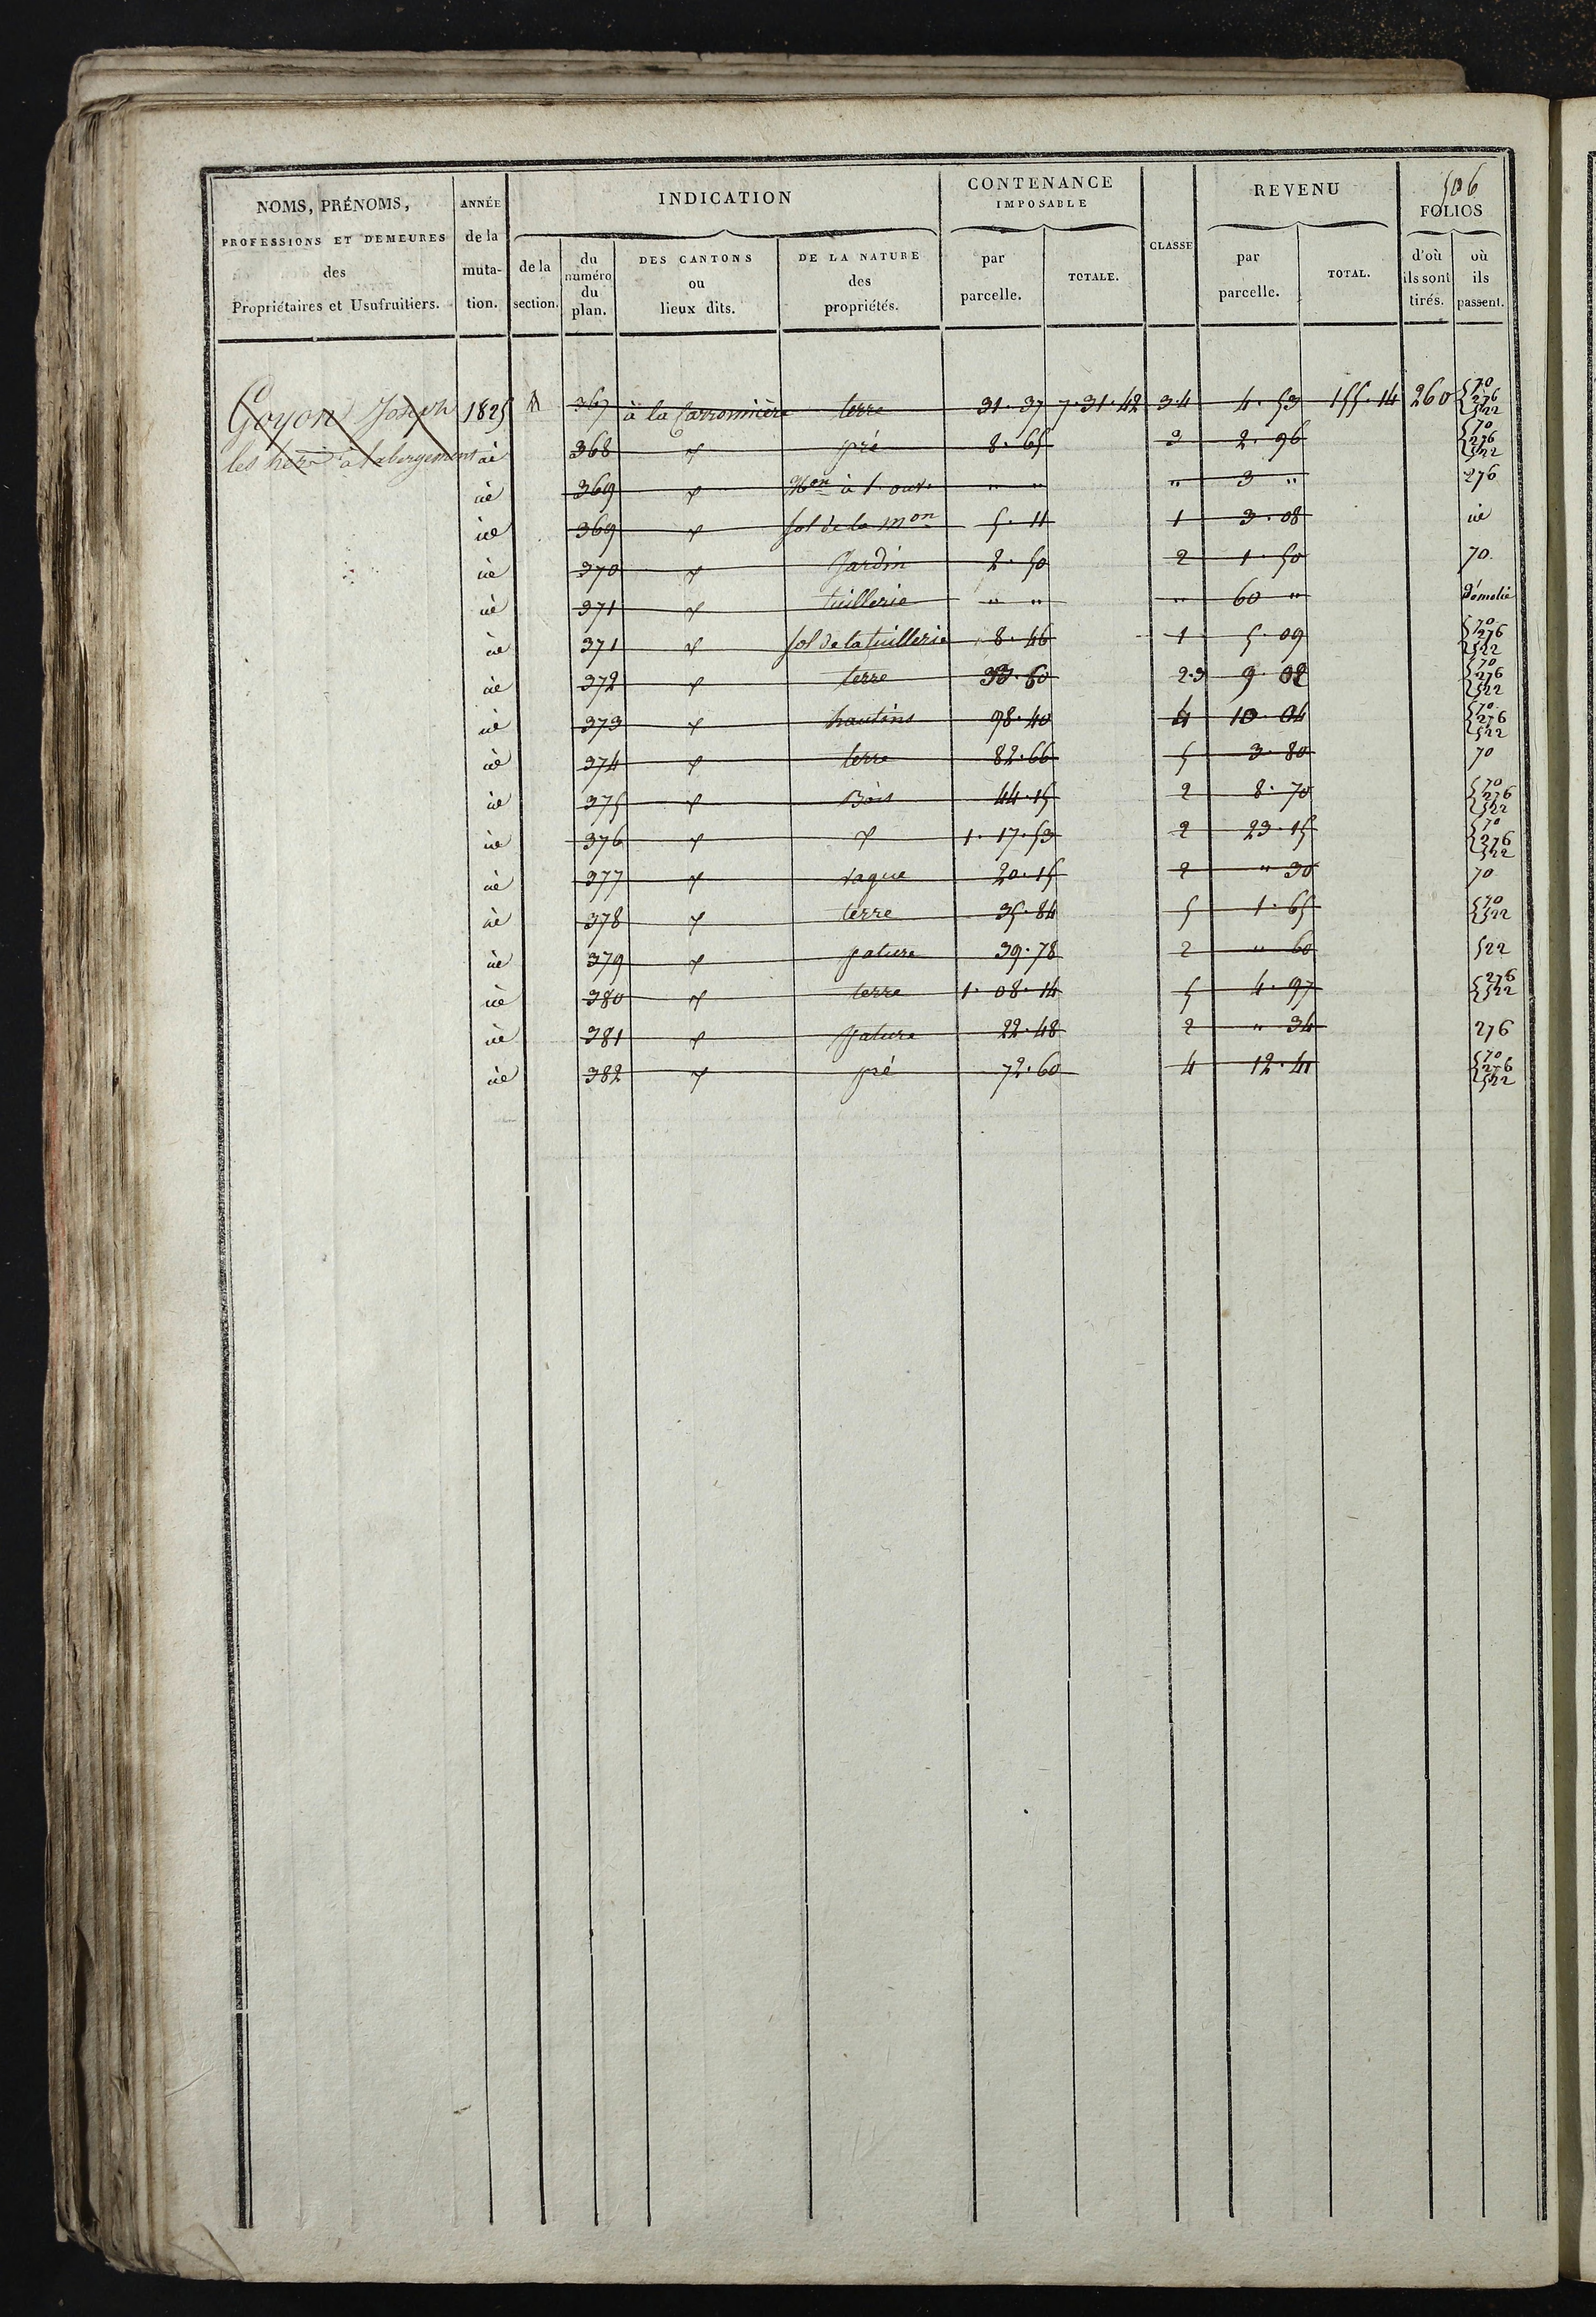 506
NOMS, PRÉNOMS, PROFESSIONS ET DEMEURES des Propriétaires et Usufruitiers.
ANNÉE de la mutation.
INDICATION
de la section.
du numéro du plan.
DES CANTONS ou lieux dits.
DE LA NATURE des propriétés.
CONTENANCE IMPOSABLE
par parcelle.
TOTALE.
CLASSE
REVENU
par parcelle.
TOTAL.
FOLIOS
d'où ils sont tirés.
où ils passent.
Goyon Joseph 1825 A 367 à la Carronnière terre 31.37 7.31.42 3.4 4.53 155.14 260 70 276 522
les hers à labergement id 368 d pré 8.65 3 2.96 70 276 522
id 369 d Mon à 1 ouv. " " " 3 " 276
id 369 d sol de la mon 5.11 1 3.08 id
id 370 d Jardin 2.50 2 1.50 70
id 371 d tuillerie " " " 60 " Démolie
id 371 d sol de la tuillerie 8.46 1 5.09 70 276 522
id 372 d terre 33.60 2.3 9.02 70 276 522
id 373 d hautins 98.40 4 10.04 70 276 522
id 374 d terre 82.66 5 3.80 70
id 375 d Bois 44.15 2 8.70 70 276 522
id 376 d d 1.17.53 2 23.15 70 276 522
id 377 d vague 20.15 2 " 30 70
id 378 d terre 35.84 5 1.65 70 522
id 379 d pature 39.78 2 " 60 522
id 380 d terre 1.08.14 5 4.97 276 522
id 381 d pature 22.48 2 " 34 276
id 382 d pré 72.60 4 12.41 70 276 522